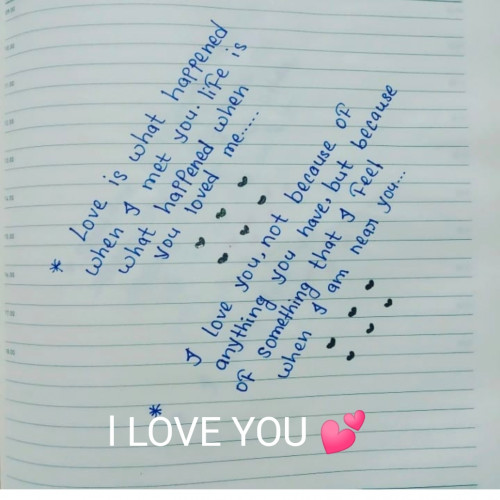 * Love is what happened
when I met you. life is
what happened when
you loved me.....
* I love you, not because of
anything you have, but because
of something that I feel
when I am near you...
I LOVE YOU 💕